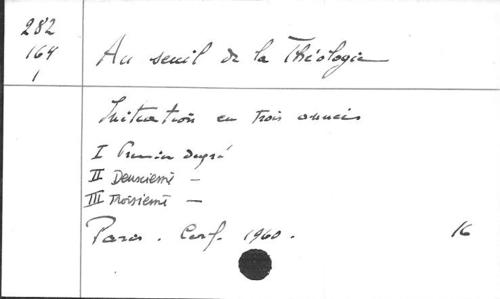 282
164
1
Au seuil de la Théologie
Initiation en trois années
I Premier degré
II Deuxième —
III Troisième —
Paris. Cerf. 1960.
16